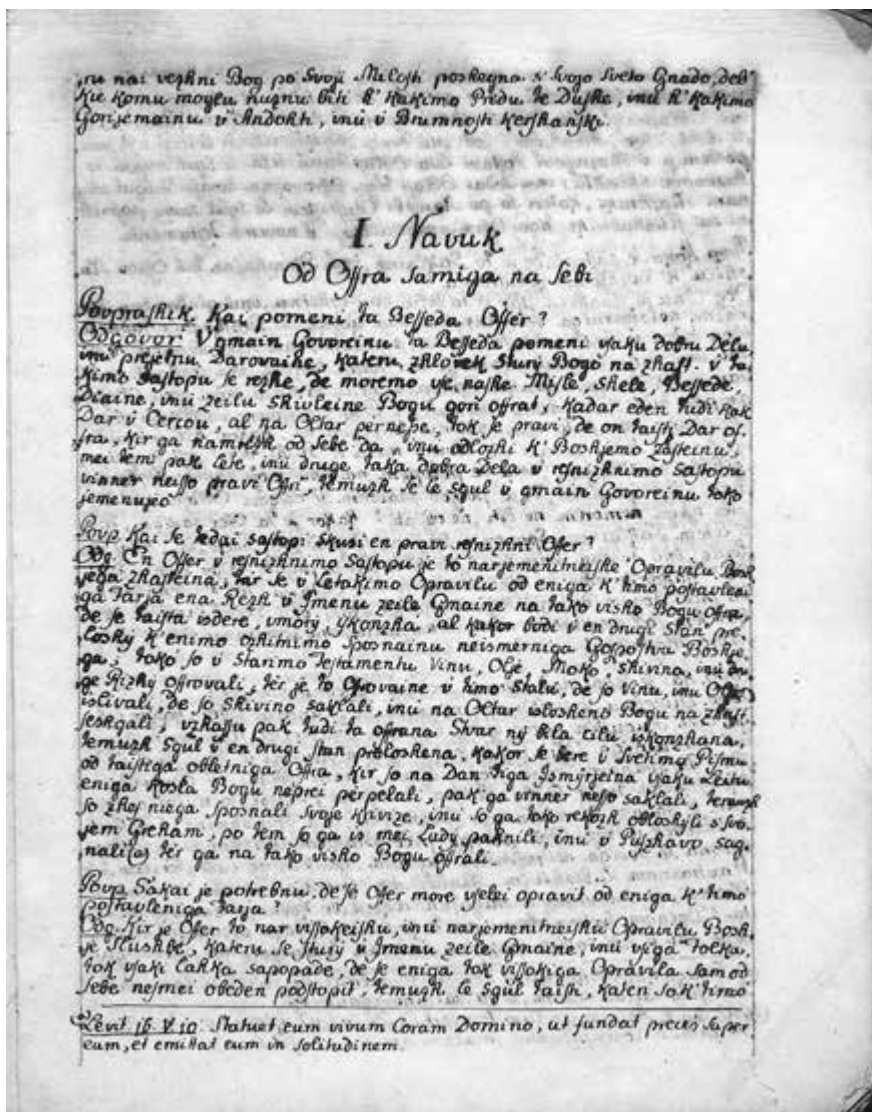 nu nai vezhni Bog po Svoji Milosti poshegna s' Svojo Sveto Gnado, de b'
kie komu moglu nuznu biti k' kakimo Pridu te Dushe, inu k' kakimo
Gorijemainu v' Andohti, inu v Brumnosti Kershanski.
I. Navuk
Od Offra samiga na sebi
Povprashik. Kai pomeni ta Besseda Offer?
Odgovor V' gmain Govoreinu ta Besseda pomeni vsaku dobru Delu,
inu prejetnu Darovaine, kateru zhlovek stury Bogo na zhast. v' ta-
kimo Sastopu se rezhe, de moremo vse nashe Misle, Shele, Bessede
Diaine, inu zeilu Shivleine Bogu gori offrat, kadar eden tudi kak
Dar v Cerkou, al na Oltar pernese, tok se pravi, de on taisti Dar of-
fra, kir ga namrezh od sebe da, inu odloshi k' Boshjemo zasteinu,
mei tem pak lete, inu druge taka dobra Dela v resnizhnimo Sastopu
vinner neiso pravi Offri, temuzh se le sgul v gmain Govoreinu toko
jemenujeo
Povp. Kai se tedai sastopi skusi en pravi resnizhni Offer?
Odg. En Offer v resnizhnimo Sastopu je to narjemenitneishe Opravilu Bosh-
jega zhasteina, kir se v Letakimo Opravilu od eniga k' timo postavleni-
ga Farja ena Rezh v Jmenu zeile Gmaine na tako visho Bogu offra,
de se taista vdere, vmory, skonzha, al kakor bodi v en drugi Stan pre-
loshy k' enimo ozhitnimo sposnainu neismerniga Gospostva Boshje-
ga, toko so v Starimo Testamentu Vinu, Olje, Moko, Shivina, inu dru-
ge Rizhy offrovali, ter je to Offrovaine v timo stalu, de so Vinu, inu Olje
islivali, de so Shivino saklali, inu na Oltar islosheno Bogu na zhast
seshgali, vzhassu pak tudi ta offrana Stvar ny bla cilu iskonzhana,
temuzh sgul v en drugi stan preloshena, kakor se bere v Svetimo Pismu
od taistiga obletniga Offra, kir so na Dan tiga Ismyrjeina vsaku Leitu
eniga kosla Bogu neprei perpelali, pak ga vinner neso saklali, temuzh
so zhes niega sposnali svoje Krivize, inu so ga toko rekozh obloshyli s' svo-
jem Greham, po tem so ga is mei Ludy pahnili, inu v Pushavo sag-
nali(a) ter ga na tako visho Bogu offrali
Povp Sakai je potrebnu, de se Offer more vselei opravit od eniga k' timo
postavleniga Farja?
Odg. Kir je Offer to nar vissokeishu, inu narjemenitneishu Opravilu Bosh-
je Slushbe, kateru se stury v Jmenu zeile Gmaine, inu vsiga Folka,
tok vsaki lahka sapopade, de se eniga tok vissokiga Opravila sam od
sebe nesmei obeden podstopit, temuzh le sgul taisti, kateri sa k' timo
Levit. 16. V. 10. Statuet eum vivum Coram Domino, ut fundat preces super
eum, et emittat eum in solitudinem.